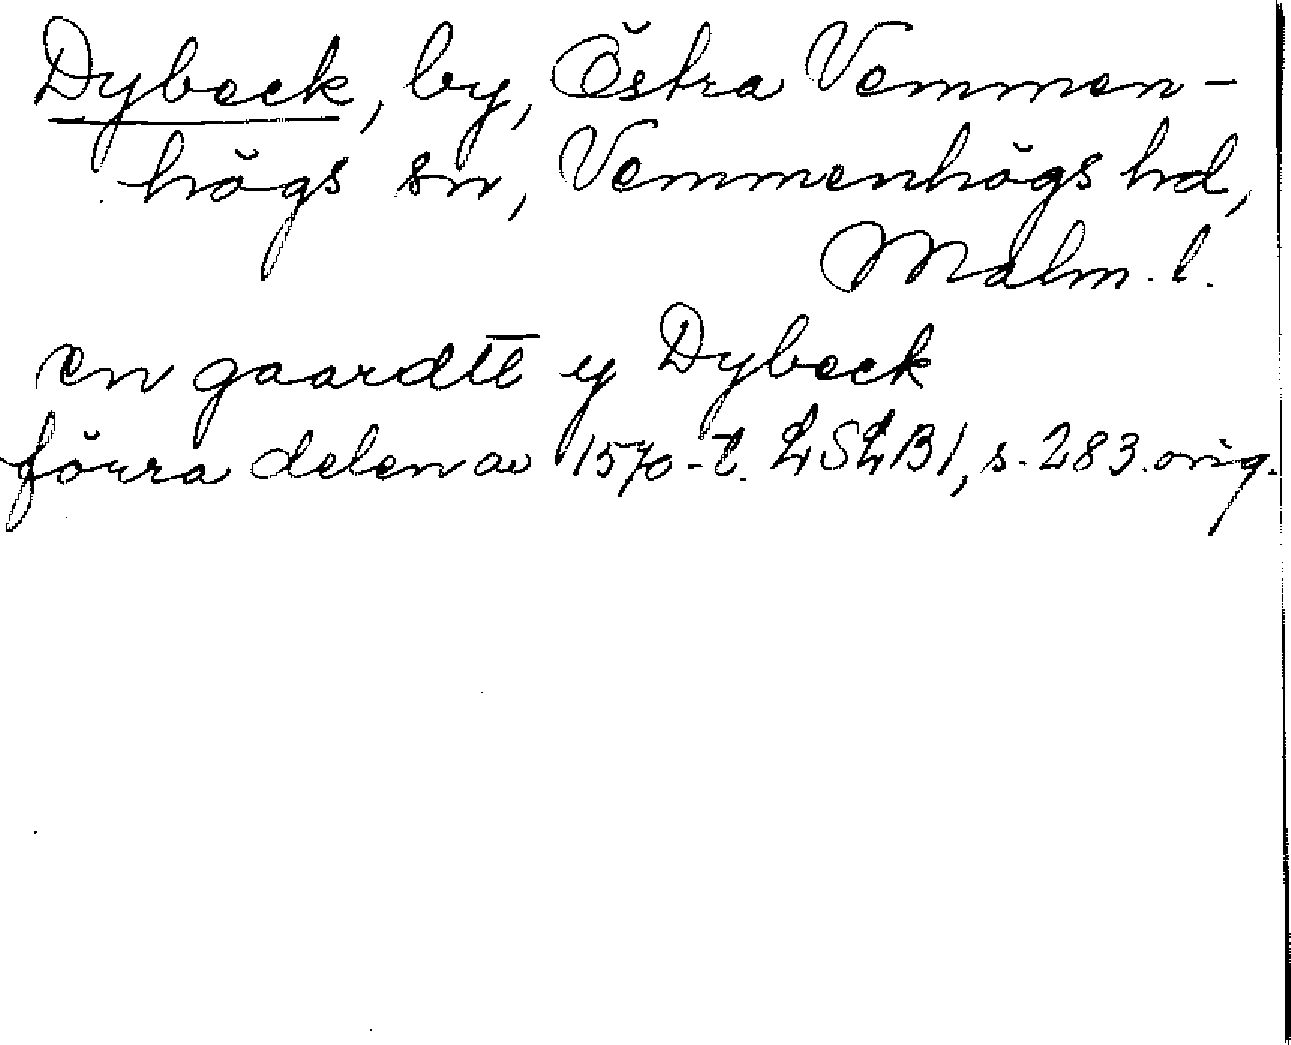 Dybeck, by, Östra Vemmen-
högs sn, Vemmenhögs hd,
Malm. l.
en gaardtt̅ y Dybeck
förra delen av 1570-t. LSLB1, s. 283. orig.